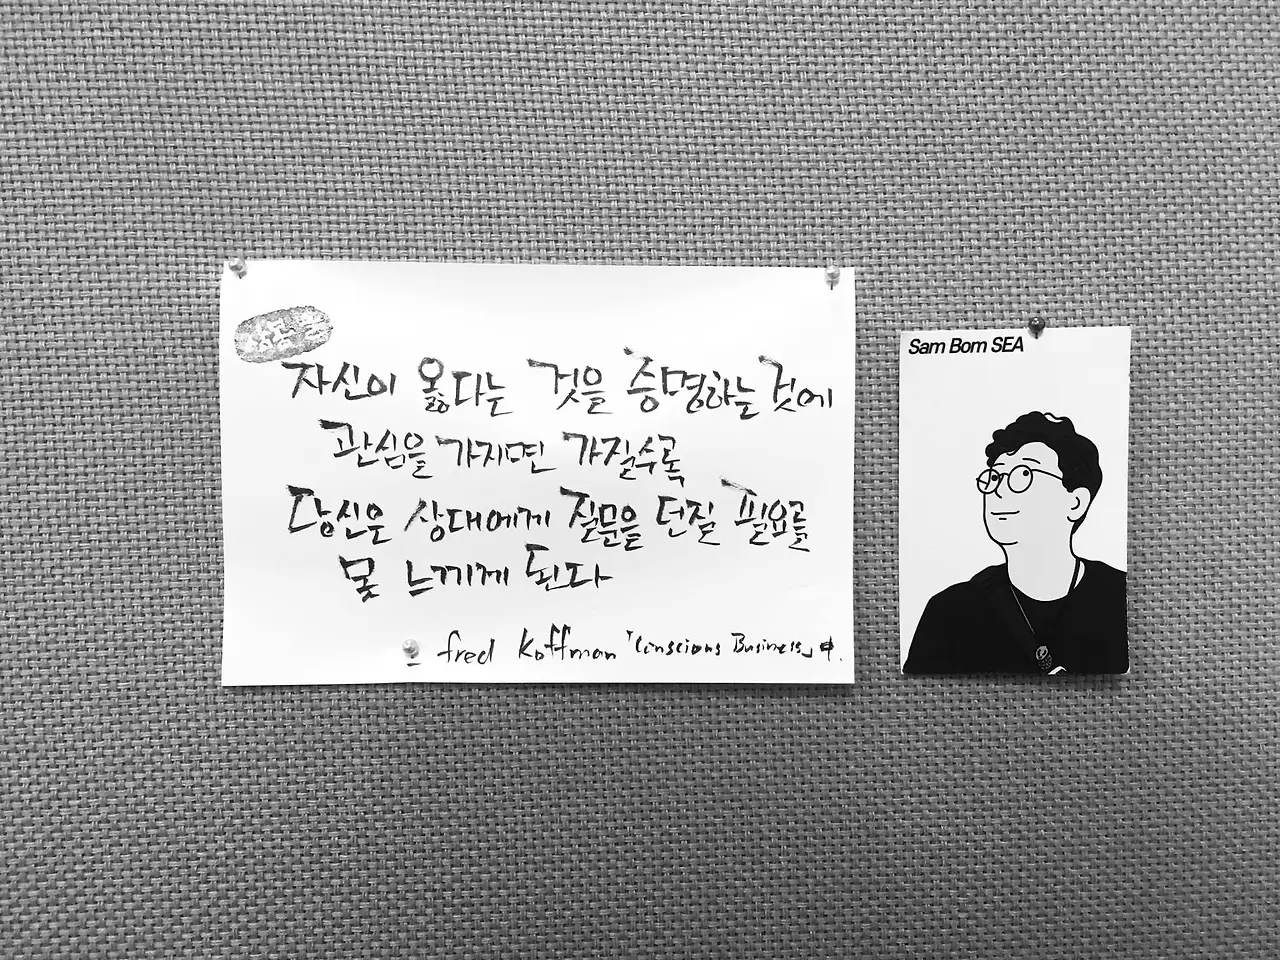 자신이 옳다는 것을 증명하는 것에
관심을 가지면 가질수록
당신은 상대에게 질문을 던질 필요를
못 느끼게 된다
fred Koffman 「Conscious Business」 中.
Sam Bom SEA